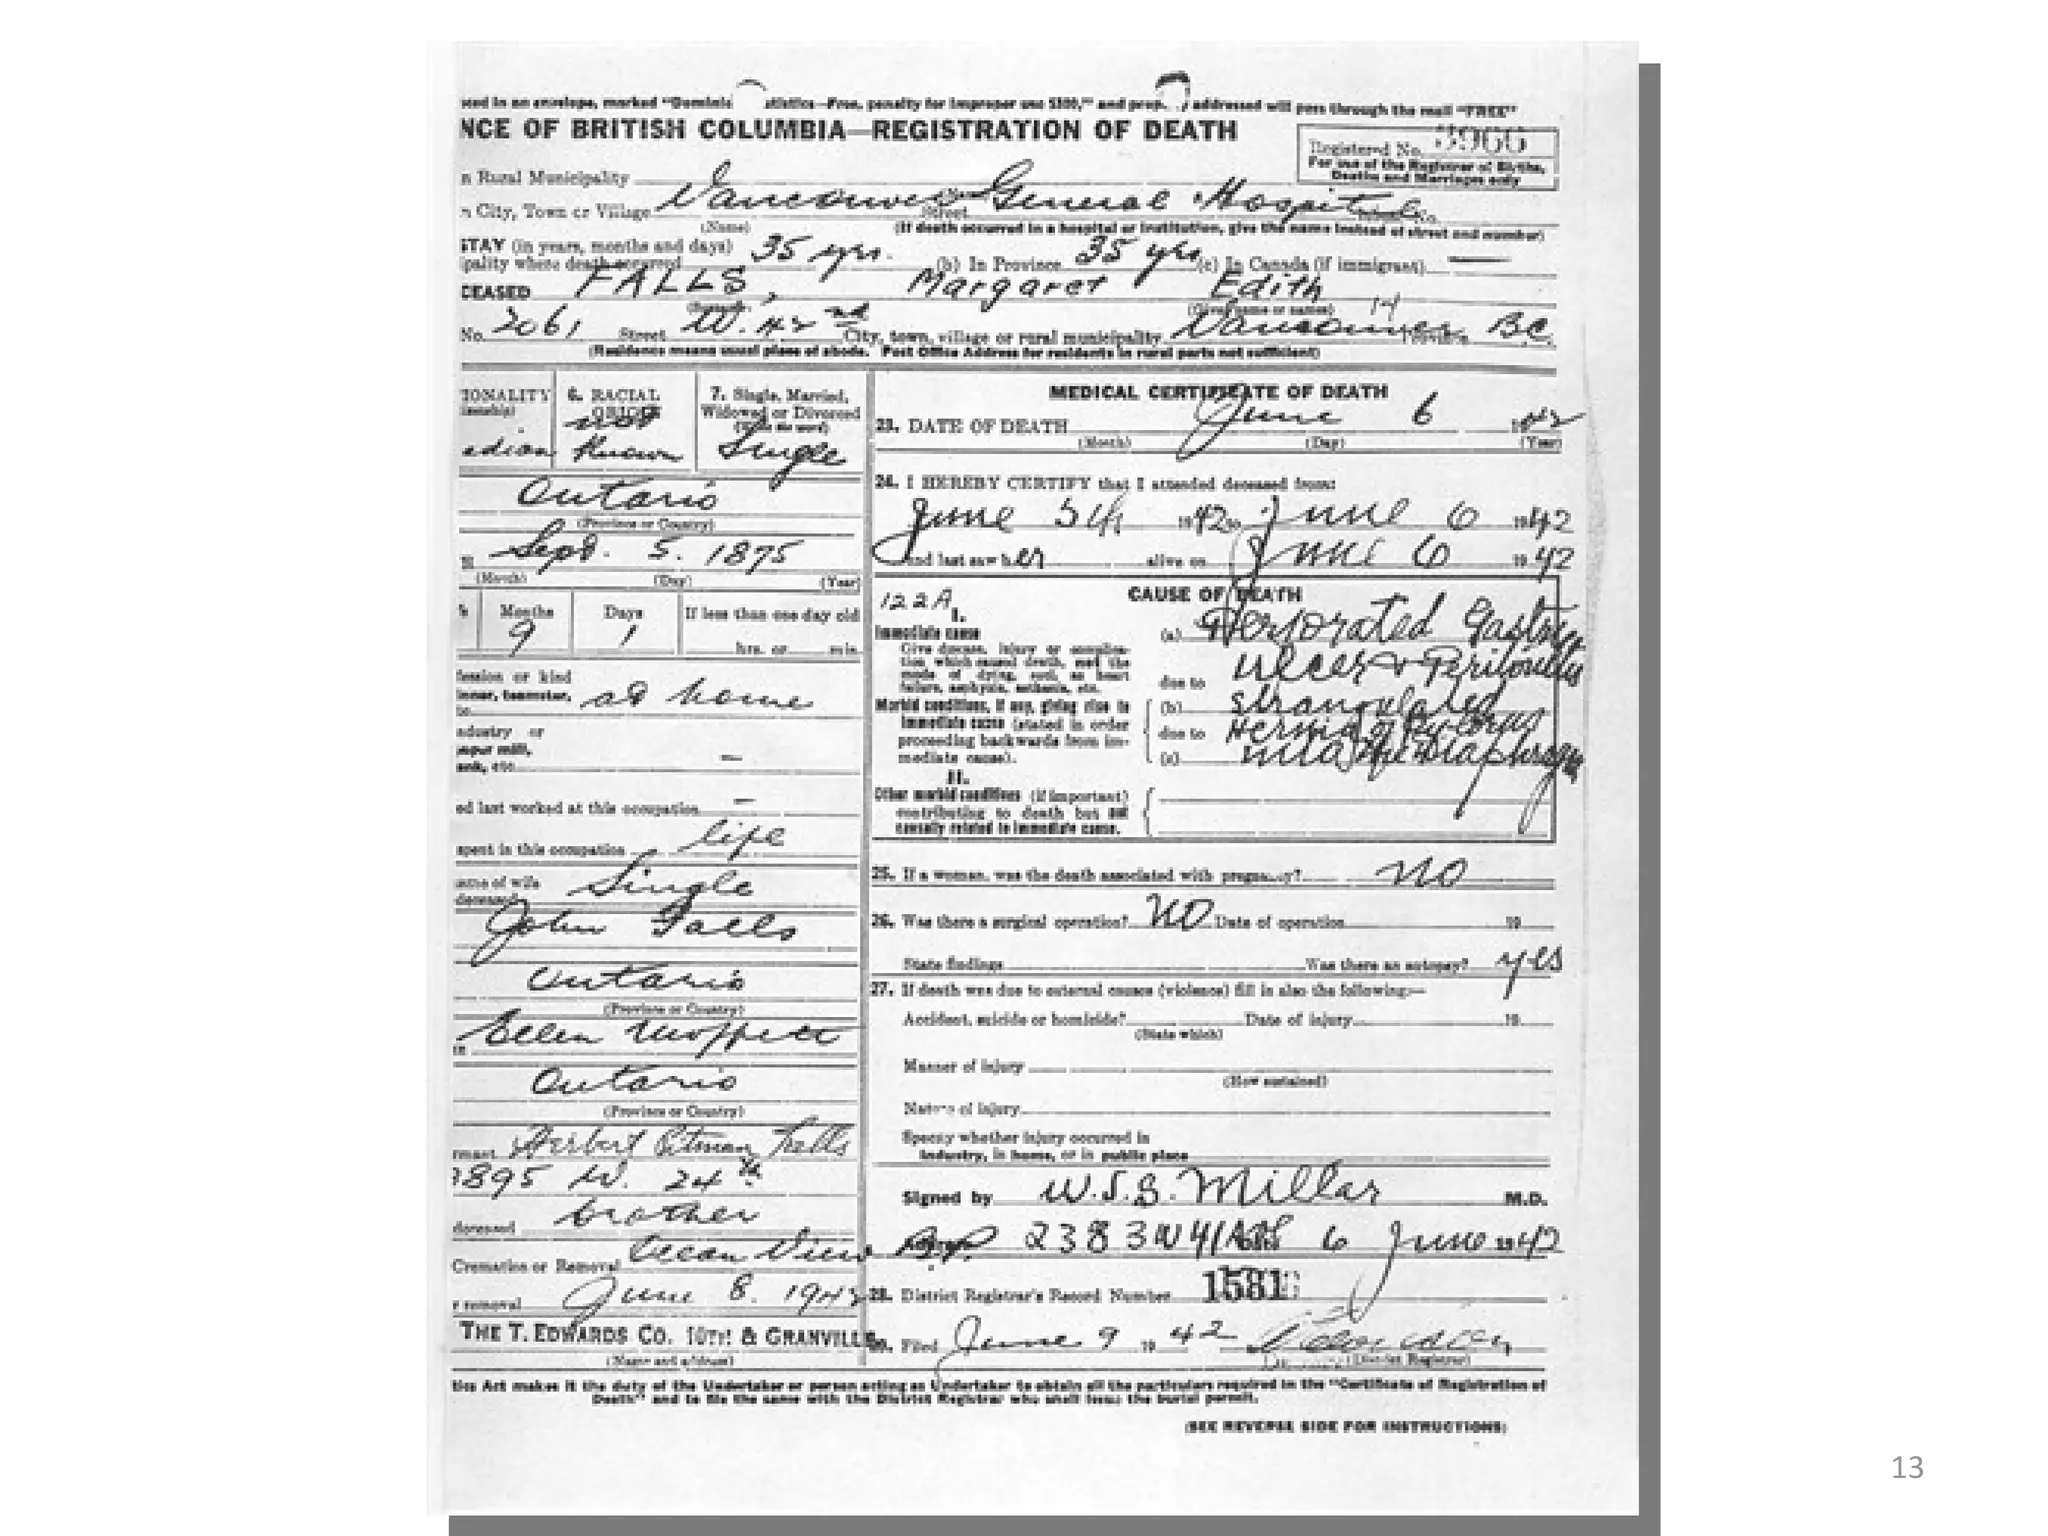 in an envelope, marked "Dominio atistics—Free, penalty for improper use $300," and prop addressed will pass through the mail "FREE"
NCE OF BRITISH COLUMBIA—REGISTRATION OF DEATH
Registered No. 3966
For use of the Registrar of Births,
Deaths and Marriages only
n Rural Municipality
n City, Town or Village Vancouver Street General Hospital No.
(Name) (If death occurred in a hospital or institution, give the name instead of street and number)
STAY (in years, months and days)
ipality where death occurred 35 yrs. (b) In Province 35 yrs (c) In Canada (if immigrant) —
CEASED FALLS, Margaret Edith
(Given name or names) 14
No. 2061 Street W. 42nd City, town, village or rural municipality Vancouver Province B.C.
(Residence means usual place of abode. Post Office Address for residents in rural parts not sufficient)
IONALITY
6. RACIAL
ORIGIN
7. Single, Married,
Widowed or Divorced
adian
not
Known
Single
Ontario
(Province or Country)
Sept. 5. 1875
(Month) (Day) (Year)
Months Days If less than one day old
9 1 hrs. or min.
fession or kind
inner, teamster, at home
ndustry or
paper mill,
ank, etc. —
ed last worked at this occupation —
spent in this occupation life
ame of wife
deceased Single
John Falls
Ontario
(Province or Country)
Ellen Moffett
Ontario
(Province or Country)
rmant Herbert Pitman Falls
3895 W. 24th.
deceased brother
Cremation or Removal Ocean View B.P.
r removal June 8. 1942
THE T. EDWARDS CO. 10TH & GRANVILLE
(Name and address)
MEDICAL CERTIFICATE OF DEATH
23. DATE OF DEATH June 6 1942
(Month) (Day) (Year)
24. I HEREBY CERTIFY that I attended deceased from:
June 5th 1942 to June 6 1942
and last saw her alive on June 6 1942
122A CAUSE OF DEATH
I.
Immediate cause
Give disease, injury or complica-
tion, which caused death, not the
mode of dying, such as heart
failure, asphyxia, asthenia, etc.
(a) Perforated Gastric
Ulcer & Peritonitis
due to
Morbid conditions, if any, giving rise to
immediate cause (stated in order
proceeding backwards from im-
mediate cause).
(b) Strangulated
due to Hernia of Pylorus
(c) into the Diaphragm
II.
Other morbid conditions (if important)
contributing to death but not
causally related to immediate cause.
25. If a woman, was the death associated with pregnancy? no
26. Was there a surgical operation? NO Date of operation 19
State findings Was there an autopsy? yes
27. If death was due to external causes (violence) fill in also the following:—
Accident, suicide or homicide? Date of injury 19
(State which)
Manner of injury
(How sustained)
Nature of injury
Specify whether injury occurred in
industry, in home, or in public place
Signed by W.S.B. Millar M.D.
2383 W 41 6 June 1942
28. District Registrar's Record Number 1581
29. Filed June 9 1942
(District Registrar)
tics Act makes it the duty of the Undertaker or person acting as Undertaker to obtain all the particulars required in the "Certificate of Registration of
Death" and to file the same with the District Registrar who shall issue the burial permit.
(SEE REVERSE SIDE FOR INSTRUCTIONS)
13